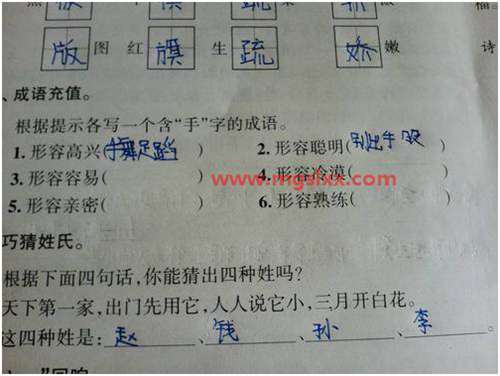 版 图 红 旗 生 疏 娇 嫩 诗
、成语充值。
根据提示各写一个含“手”字的成语。
1. 形容高兴(手舞足蹈) 2. 形容聪明(
3. 形容容易( ) 4. 形容冷漠( )
www.mgslxx.com
5. 形容亲密( ) 6. 形容熟练( )
巧猜姓氏。
根据下面四句话,你能猜出四种姓吗?
天下第一家,出门先用它,人人说它小,三月开白花。
这四种姓是: 赵 、 钱 、 孙 、 李 。